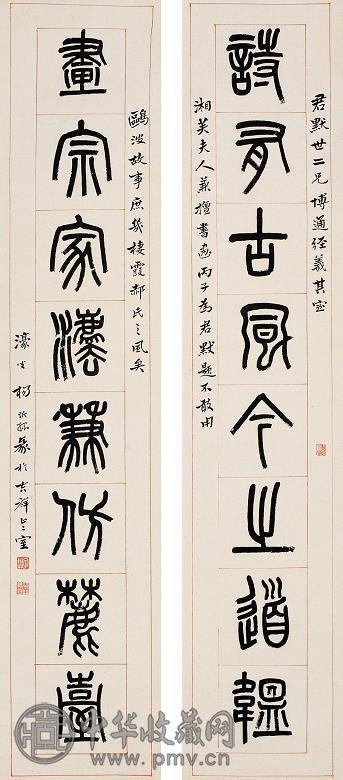 君默世二兄博通经義其室
詩有古風今之道韞
湘芙夫人兼擅書畫丙子為君默題不敢用
鷗波故事庶幾棲霞郝氏之風矣
畫宗家灋兼仿麓臺
濠叟楊沂孫篆於吉祥止止室
中华收藏网
www.pmv.cn